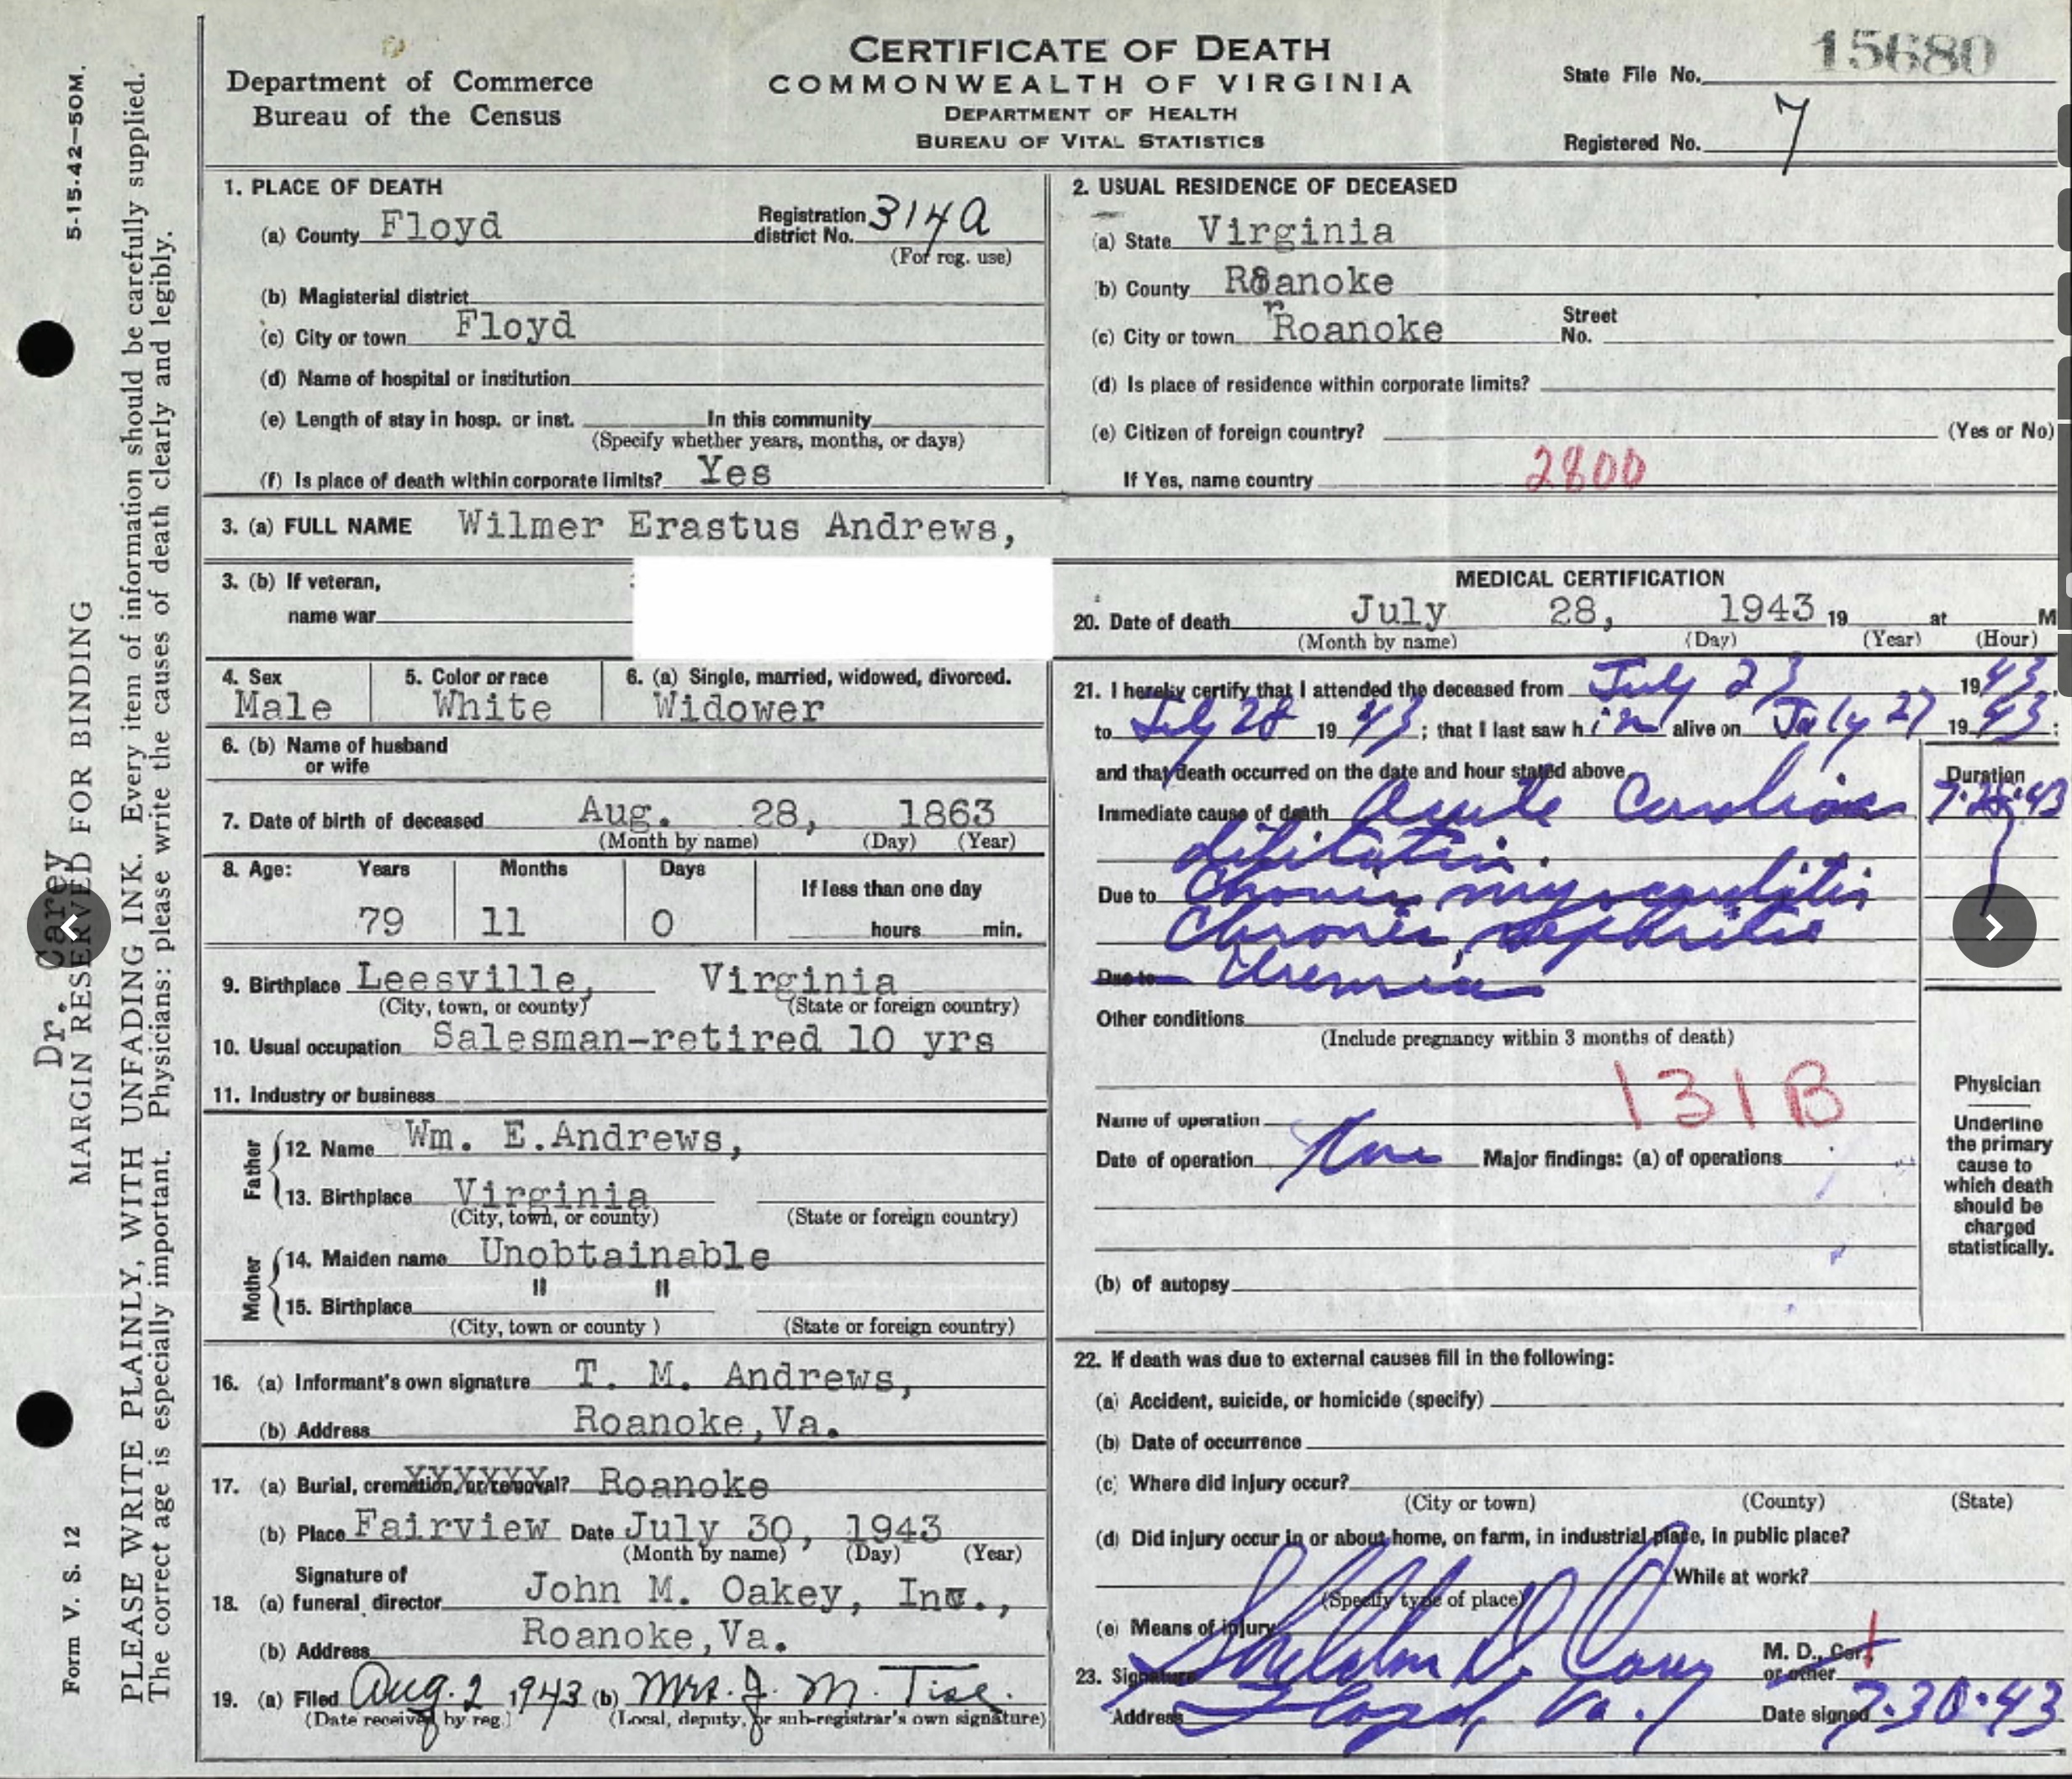 5-15-42—50M.
Dr. Carey
MARGIN RESERVED FOR BINDING
PLEASE WRITE PLAINLY, WITH UNFADING INK. Every item of information should be carefully supplied.
The correct age is especially important. Physicians: please write the causes of death clearly and legibly.
Form V. S. 12
Department of Commerce
Bureau of the Census
CERTIFICATE OF DEATH
COMMONWEALTH OF VIRGINIA
DEPARTMENT OF HEALTH
BUREAU OF VITAL STATISTICS
State File No. 15680
Registered No. 7
1. PLACE OF DEATH
(a) County Floyd Registration district No. 314A
(For reg. use)
(b) Magisterial district
(c) City or town Floyd
(d) Name of hospital or institution
(e) Length of stay in hosp. or inst. In this community
(Specify whether years, months, or days)
(f) Is place of death within corporate limits? Yes
2. USUAL RESIDENCE OF DECEASED
(a) State Virginia
(b) County Roanoke
(c) City or town Roanoke Street No.
(d) Is place of residence within corporate limits?
(e) Citizen of foreign country? (Yes or No)
If Yes, name country 2800
3. (a) FULL NAME Wilmer Erastus Andrews,
3. (b) If veteran,
name war
4. Sex 5. Color or race 6. (a) Single, married, widowed, divorced.
Male White Widower
6. (b) Name of husband
or wife
7. Date of birth of deceased Aug. 28, 1863
(Month by name) (Day) (Year)
8. Age: Years Months Days If less than one day
79 11 0 hours min.
9. Birthplace Leesville, Virginia
(City, town, or county) (State or foreign country)
10. Usual occupation Salesman-retired 10 yrs
11. Industry or business
Father
12. Name Wm. E.Andrews,
13. Birthplace Virginia
(City, town, or county) (State or foreign country)
Mother
14. Maiden name Unobtainable
15. Birthplace " "
(City, town or county ) (State or foreign country)
16. (a) Informant's own signature T. M. Andrews,
(b) Address Roanoke,Va.
17. (a) Burial, cremation, or removal? XXXXXX Roanoke
(b) Place Fairview Date July 30, 1943
(Month by name) (Day) (Year)
Signature of
18. (a) funeral director John M. Oakey, Inc.,
(b) Address Roanoke,Va.
19. (a) Filed Aug. 2 1943 (b) Mrs. J. M. Tise.
(Date received by reg.) (Local, deputy, or sub-registrar's own signature)
MEDICAL CERTIFICATION
20. Date of death July 28, 1943 19 at M
(Month by name) (Day) (Year) (Hour)
21. I hereby certify that I attended the deceased from July 23 1943,
to July 28 1943; that I last saw him alive on July 27 1943:
and that death occurred on the date and hour stated above. Duration
Immediate cause of death Acute Cardiac
dilitation.
Due to Chronic myocarditis
Chronic nephritis
Due to Uremia
Other conditions
(Include pregnancy within 3 months of death)
131B
Name of operation
Date of operation None Major findings: (a) of operations
(b) of autopsy
Physician
Underline
the primary
cause to
which death
should be
charged
statistically.
22. If death was due to external causes fill in the following:
(a) Accident, suicide, or homicide (specify)
(b) Date of occurrence
(c) Where did injury occur?
(City or town) (County) (State)
(d) Did injury occur in or about home, on farm, in industrial place, in public place?
While at work?
(Specify type of place)
(e) Means of injury
23. Signature M. D., Cor. or other
Address Floyd, Va. Date signed 7-30-43